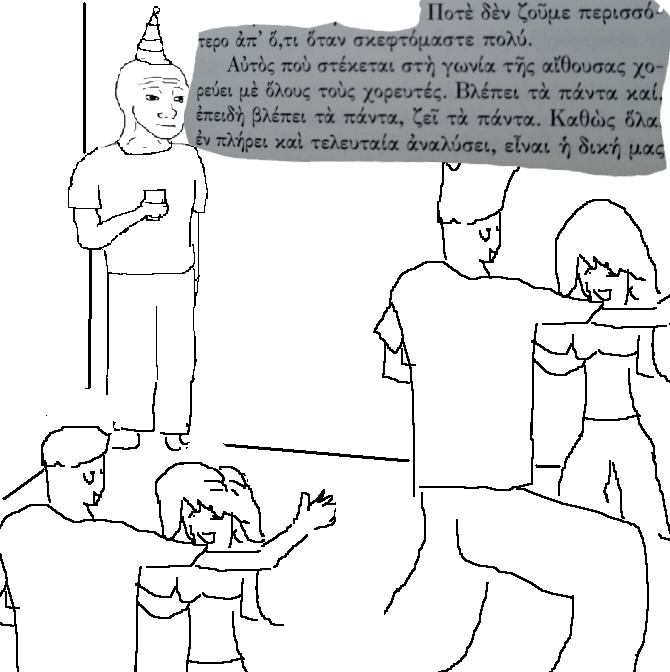 Ποτὲ δὲν ζοῦμε περισσό-
τερο ἀπ' ὅ,τι ὅταν σκεφτόμαστε πολύ.
Αὐτὸς ποὺ στέκεται στὴ γωνία τῆς αἴθουσας χο-
ρεύει μὲ ὅλους τοὺς χορευτές. Βλέπει τὰ πάντα καί,
ἐπειδὴ βλέπει τὰ πάντα, ζεῖ τὰ πάντα. Καθὼς ὅλα,
ἐν πλήρει καὶ τελευταία ἀναλύσει, εἶναι ἡ δική μας